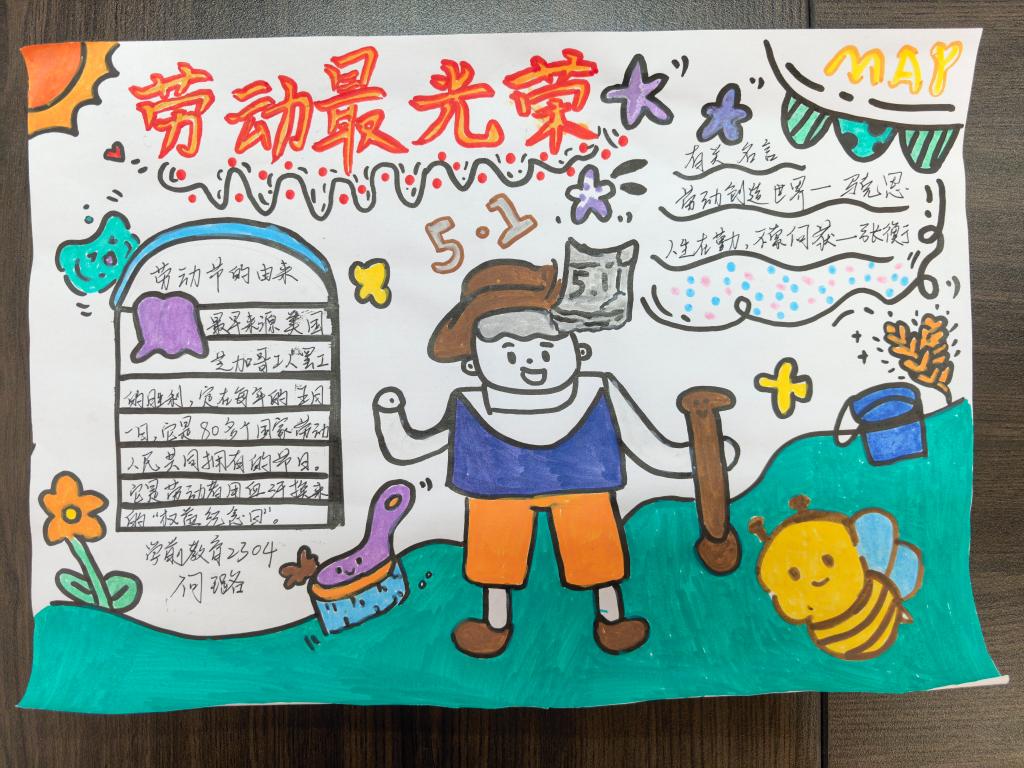 劳动最光荣
MAY
5·1
5.1
有关名言
劳动创造世界—马克思
人生在勤,不索何获—张衡
劳动节的由来
最早来源美国
芝加哥工人罢工
的胜利,定在每年的5月
一日,它是80多个国家劳动
人民共同拥有的节日。
它是劳动者用血汗换来
的“权益纪念日”。
学前教育2304
何璐